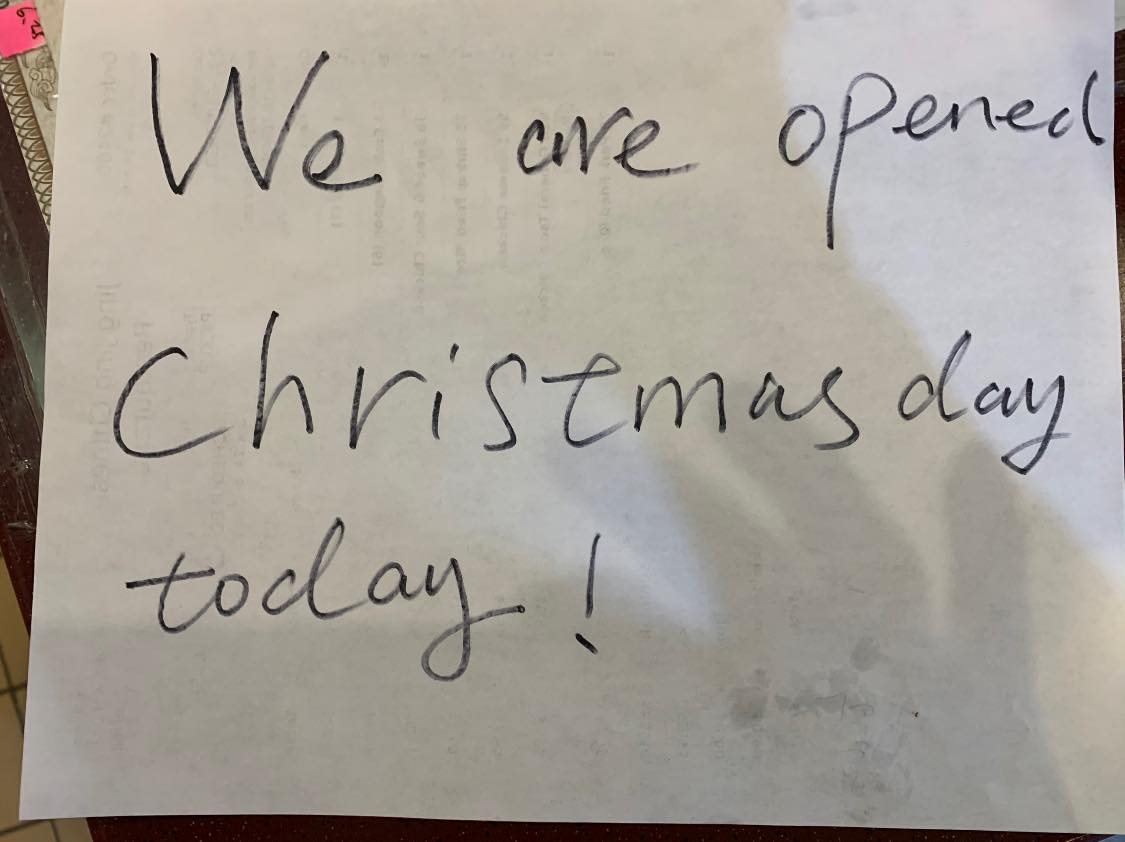 We are opened
Christmas day
today!